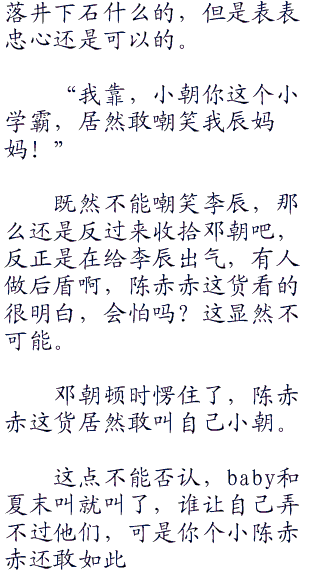 落井下石什么的，但是表表
忠心还是可以的。
“我靠，小朝你这个小
学霸，居然敢嘲笑我辰妈
妈！”
既然不能嘲笑李辰，那
么还是反过来收拾邓朝吧，
反正是在给李辰出气，有人
做后盾啊，陈赤赤这货看的
很明白，会怕吗？这显然不
可能。
邓朝顿时愣住了，陈赤
赤这货居然敢叫自己小朝。
这点不能否认，baby和
夏末叫就叫了，谁让自己弄
不过他们，可是你个小陈赤
赤还敢如此